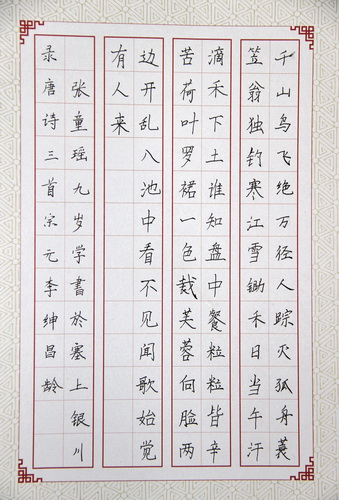 千山鸟飞绝万径人踪灭孤舟蓑
笠翁独钓寒江雪锄禾日当午汗
滴禾下土谁知盘中餐粒粒皆辛
苦荷叶罗裙一色裁芙蓉向脸两
边开乱入池中看不见闻歌始觉
有人来
张童瑶九岁学書於塞上银川
录唐诗三首宗元李绅昌龄